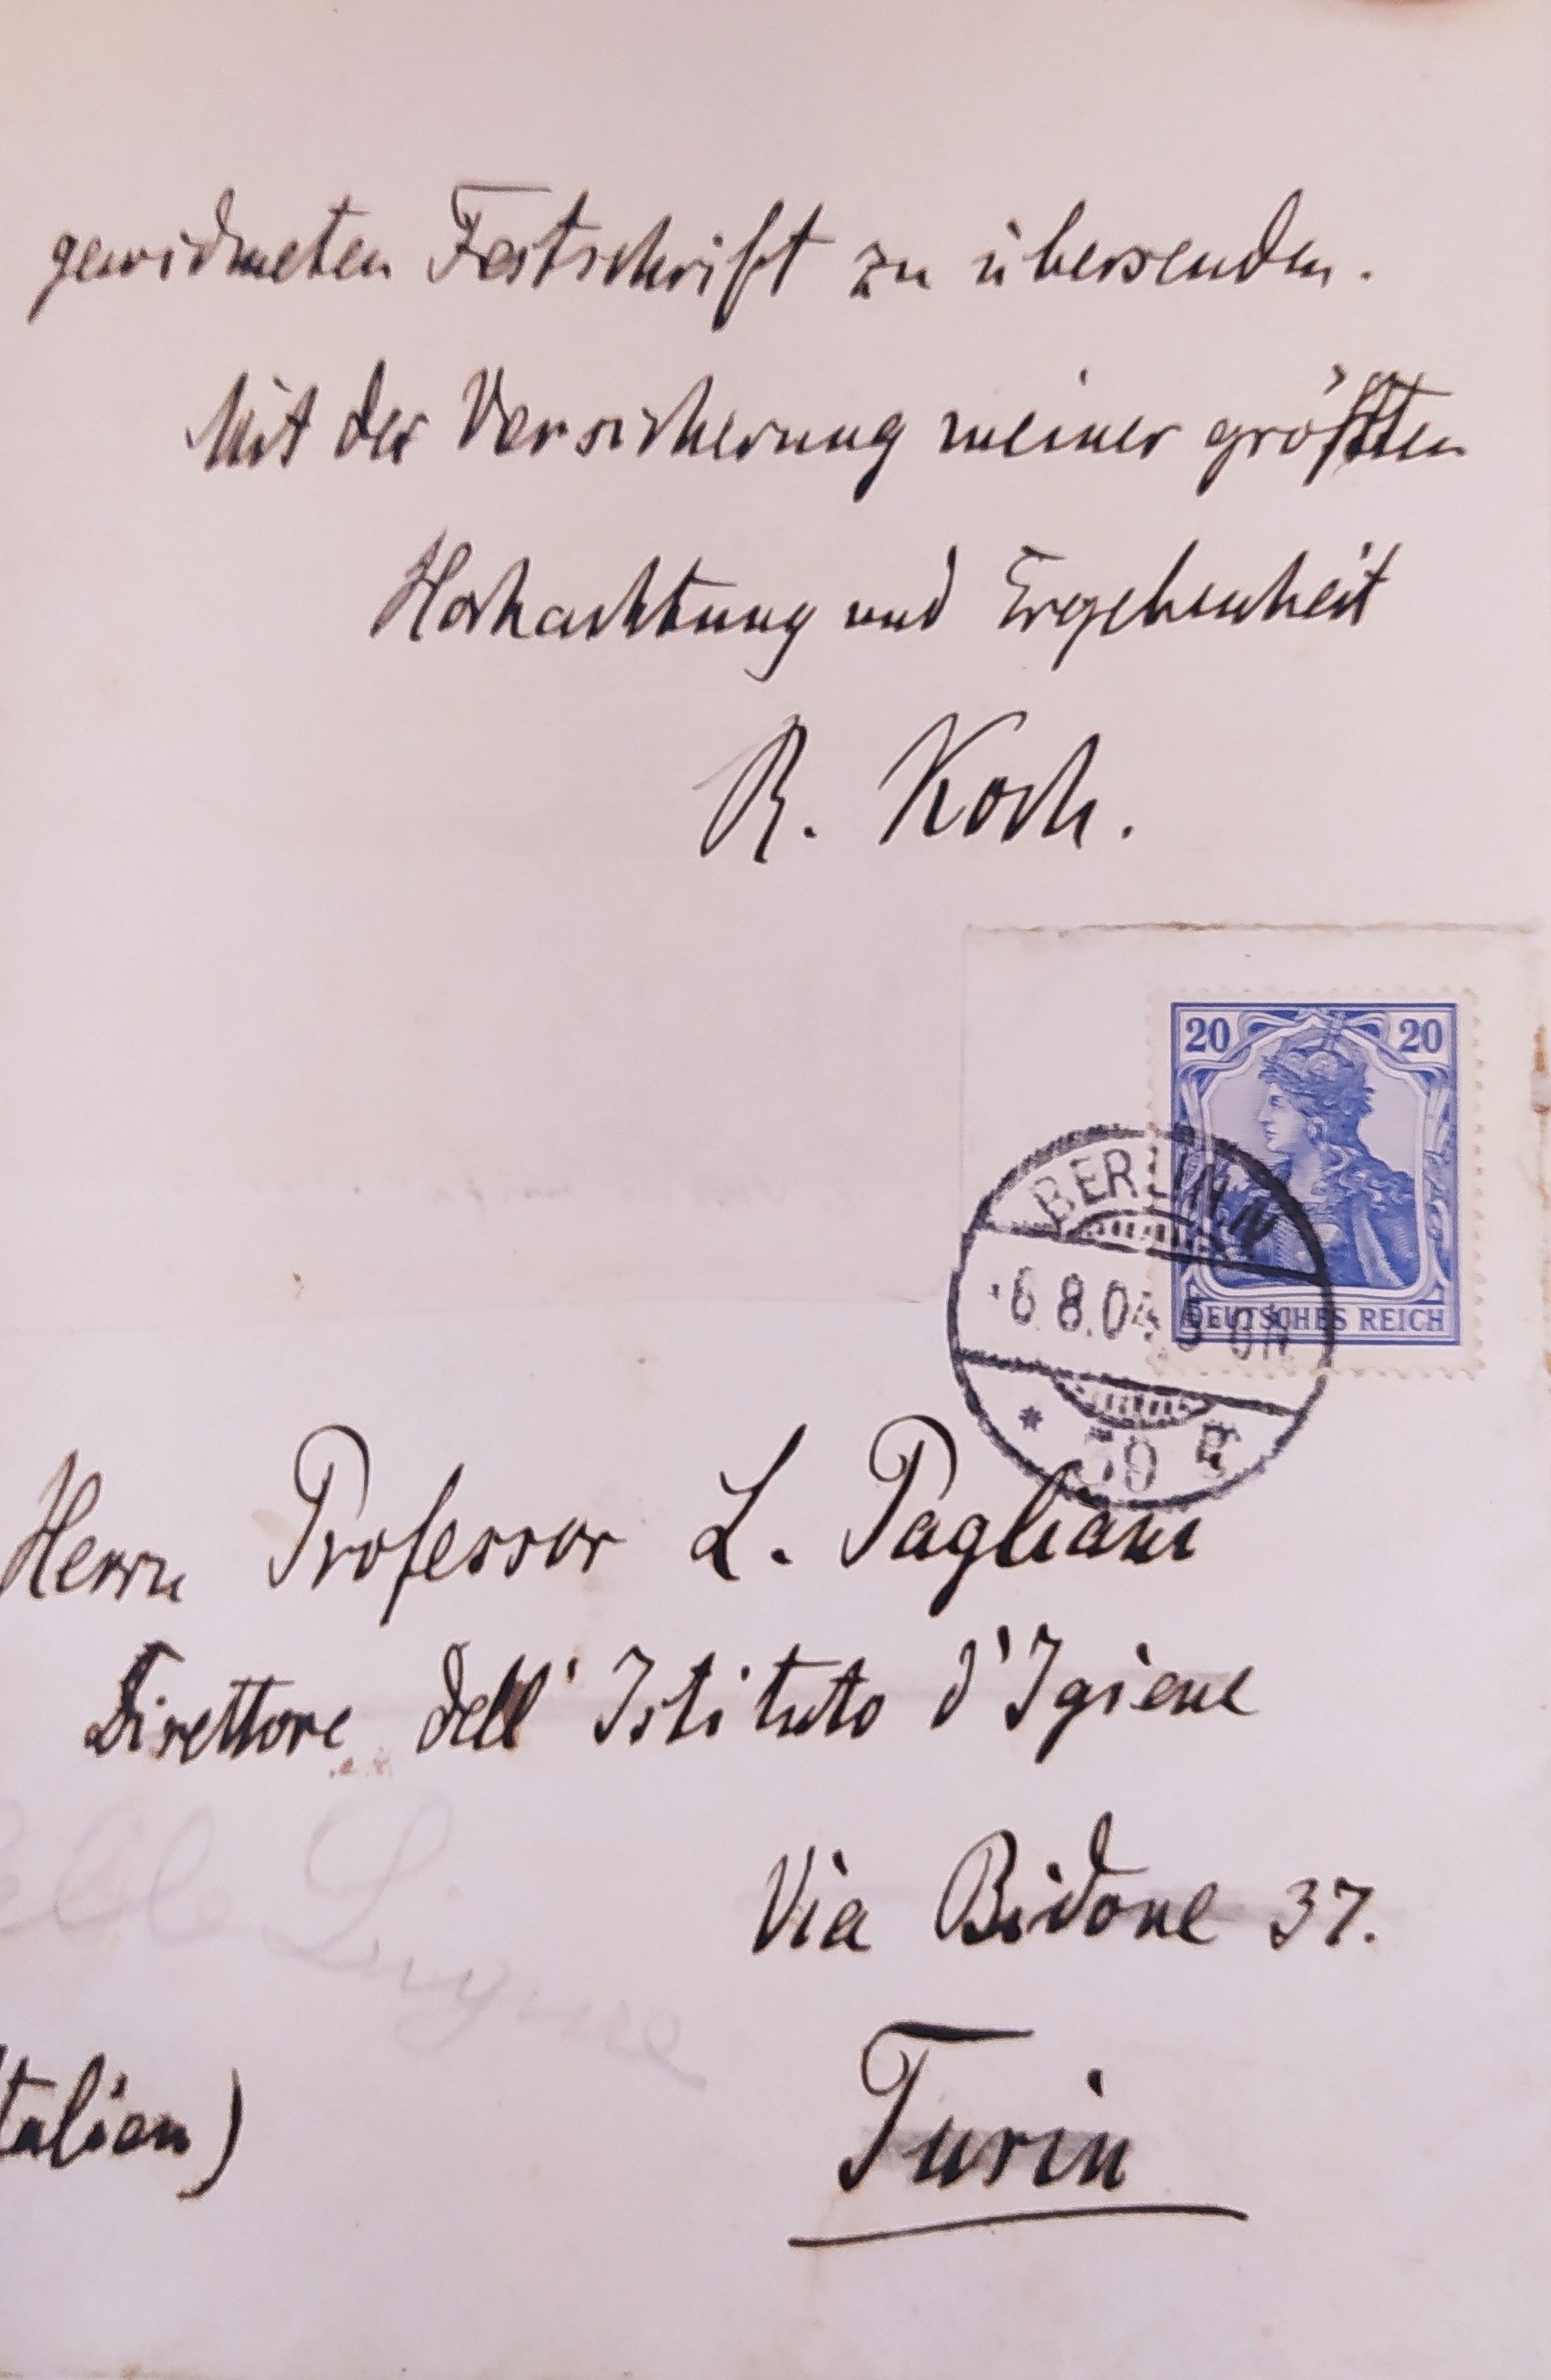 gewidmeten Festschrift zu übersenden.
Mit der Versicherung meiner größten
Hochachtung und Ergebenheit
R. Koch.
20 20
DEUTSCHES REICH
BERLIN. N
6.8.04. 5
* 39
Herrn Professor L. Pagliani
Direttore dell' Istituto d'Igiene
Via Bidone 37.
Turin
talien)